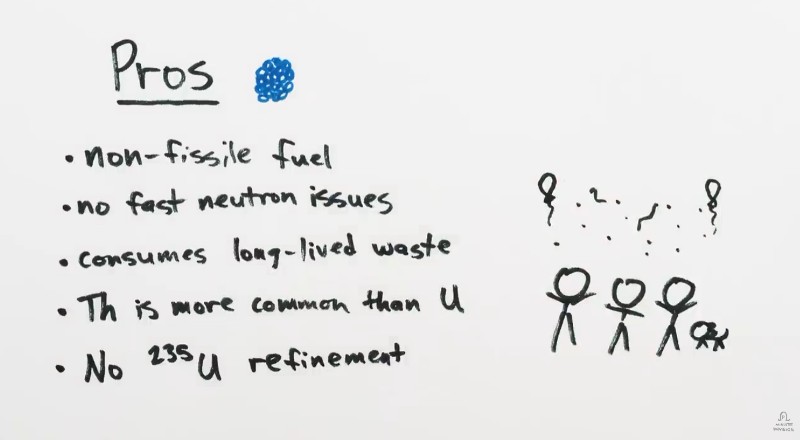 Pros
• non-fissile fuel
• no fast neutron issues
• consumes long-lived waste
• Th is more common than U
• No ²³⁵U refinement
MINUTE PHYSICS